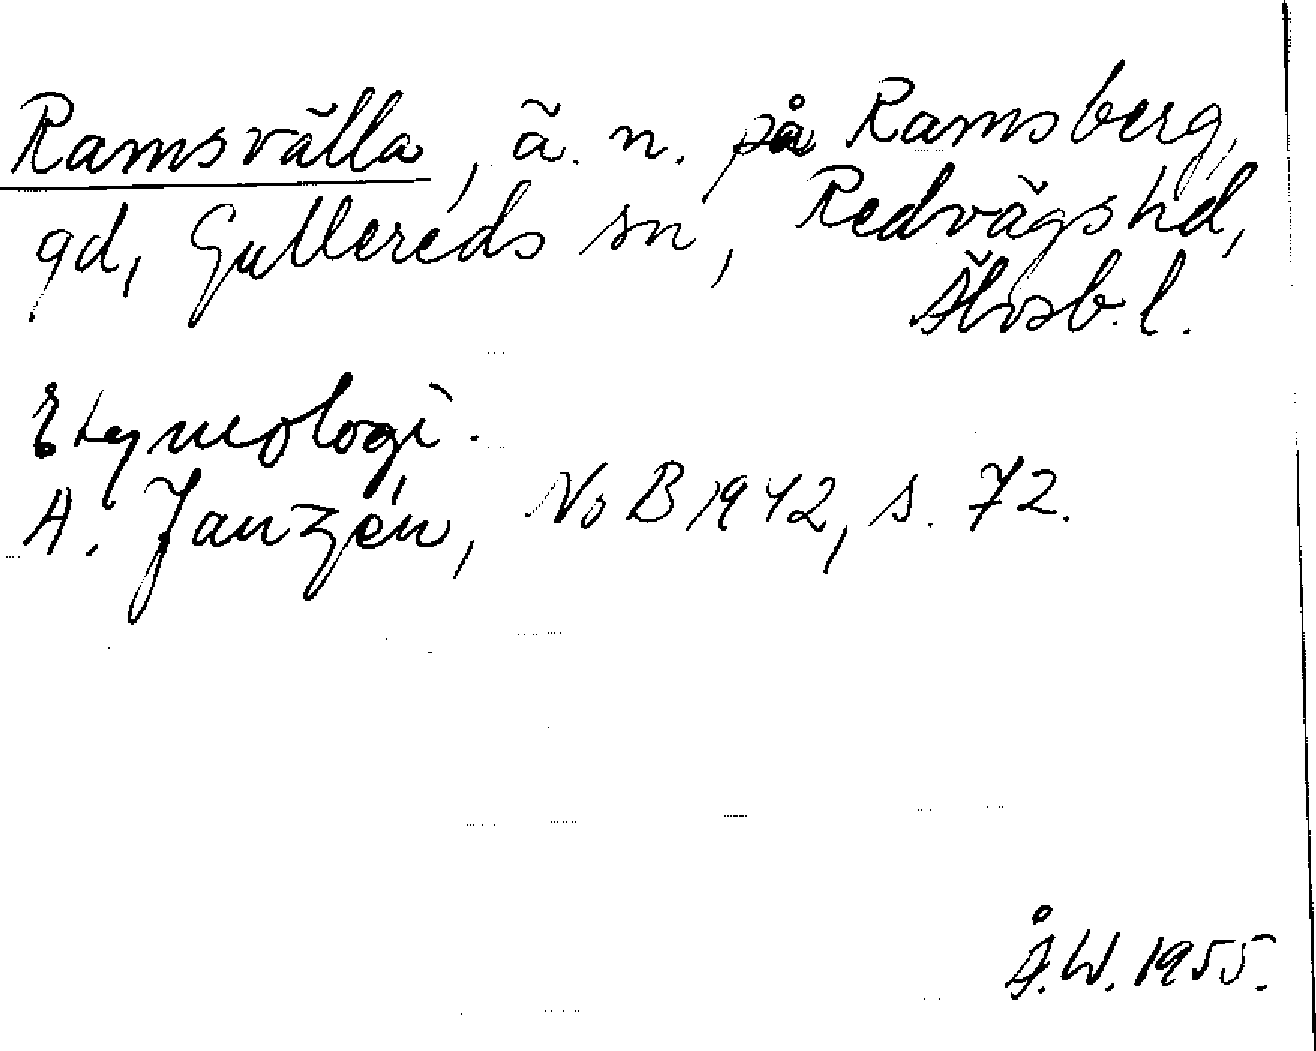 Ramsvälla, ä. n. på Ramsberg,
gd, Gullereds sn, Redvägs hd,
Älvsb. l.
Etymologi.
A. Janzén, NoB 1942, s. 72.
Å. W. 1955.